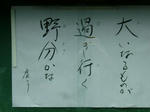 大いなるものが
過ぎ行く
野分かな
虚子